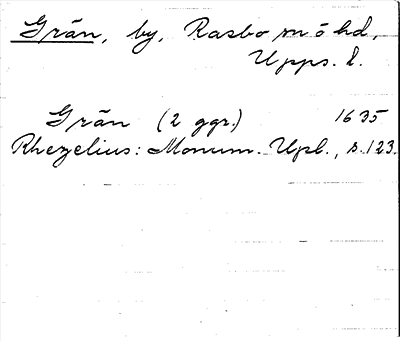 Grän, by, Rasbo sn ö hd,
Upps. l.
Grän (2 ggr.) 1635
Rhezelius: Monum. Upl., s. 123.